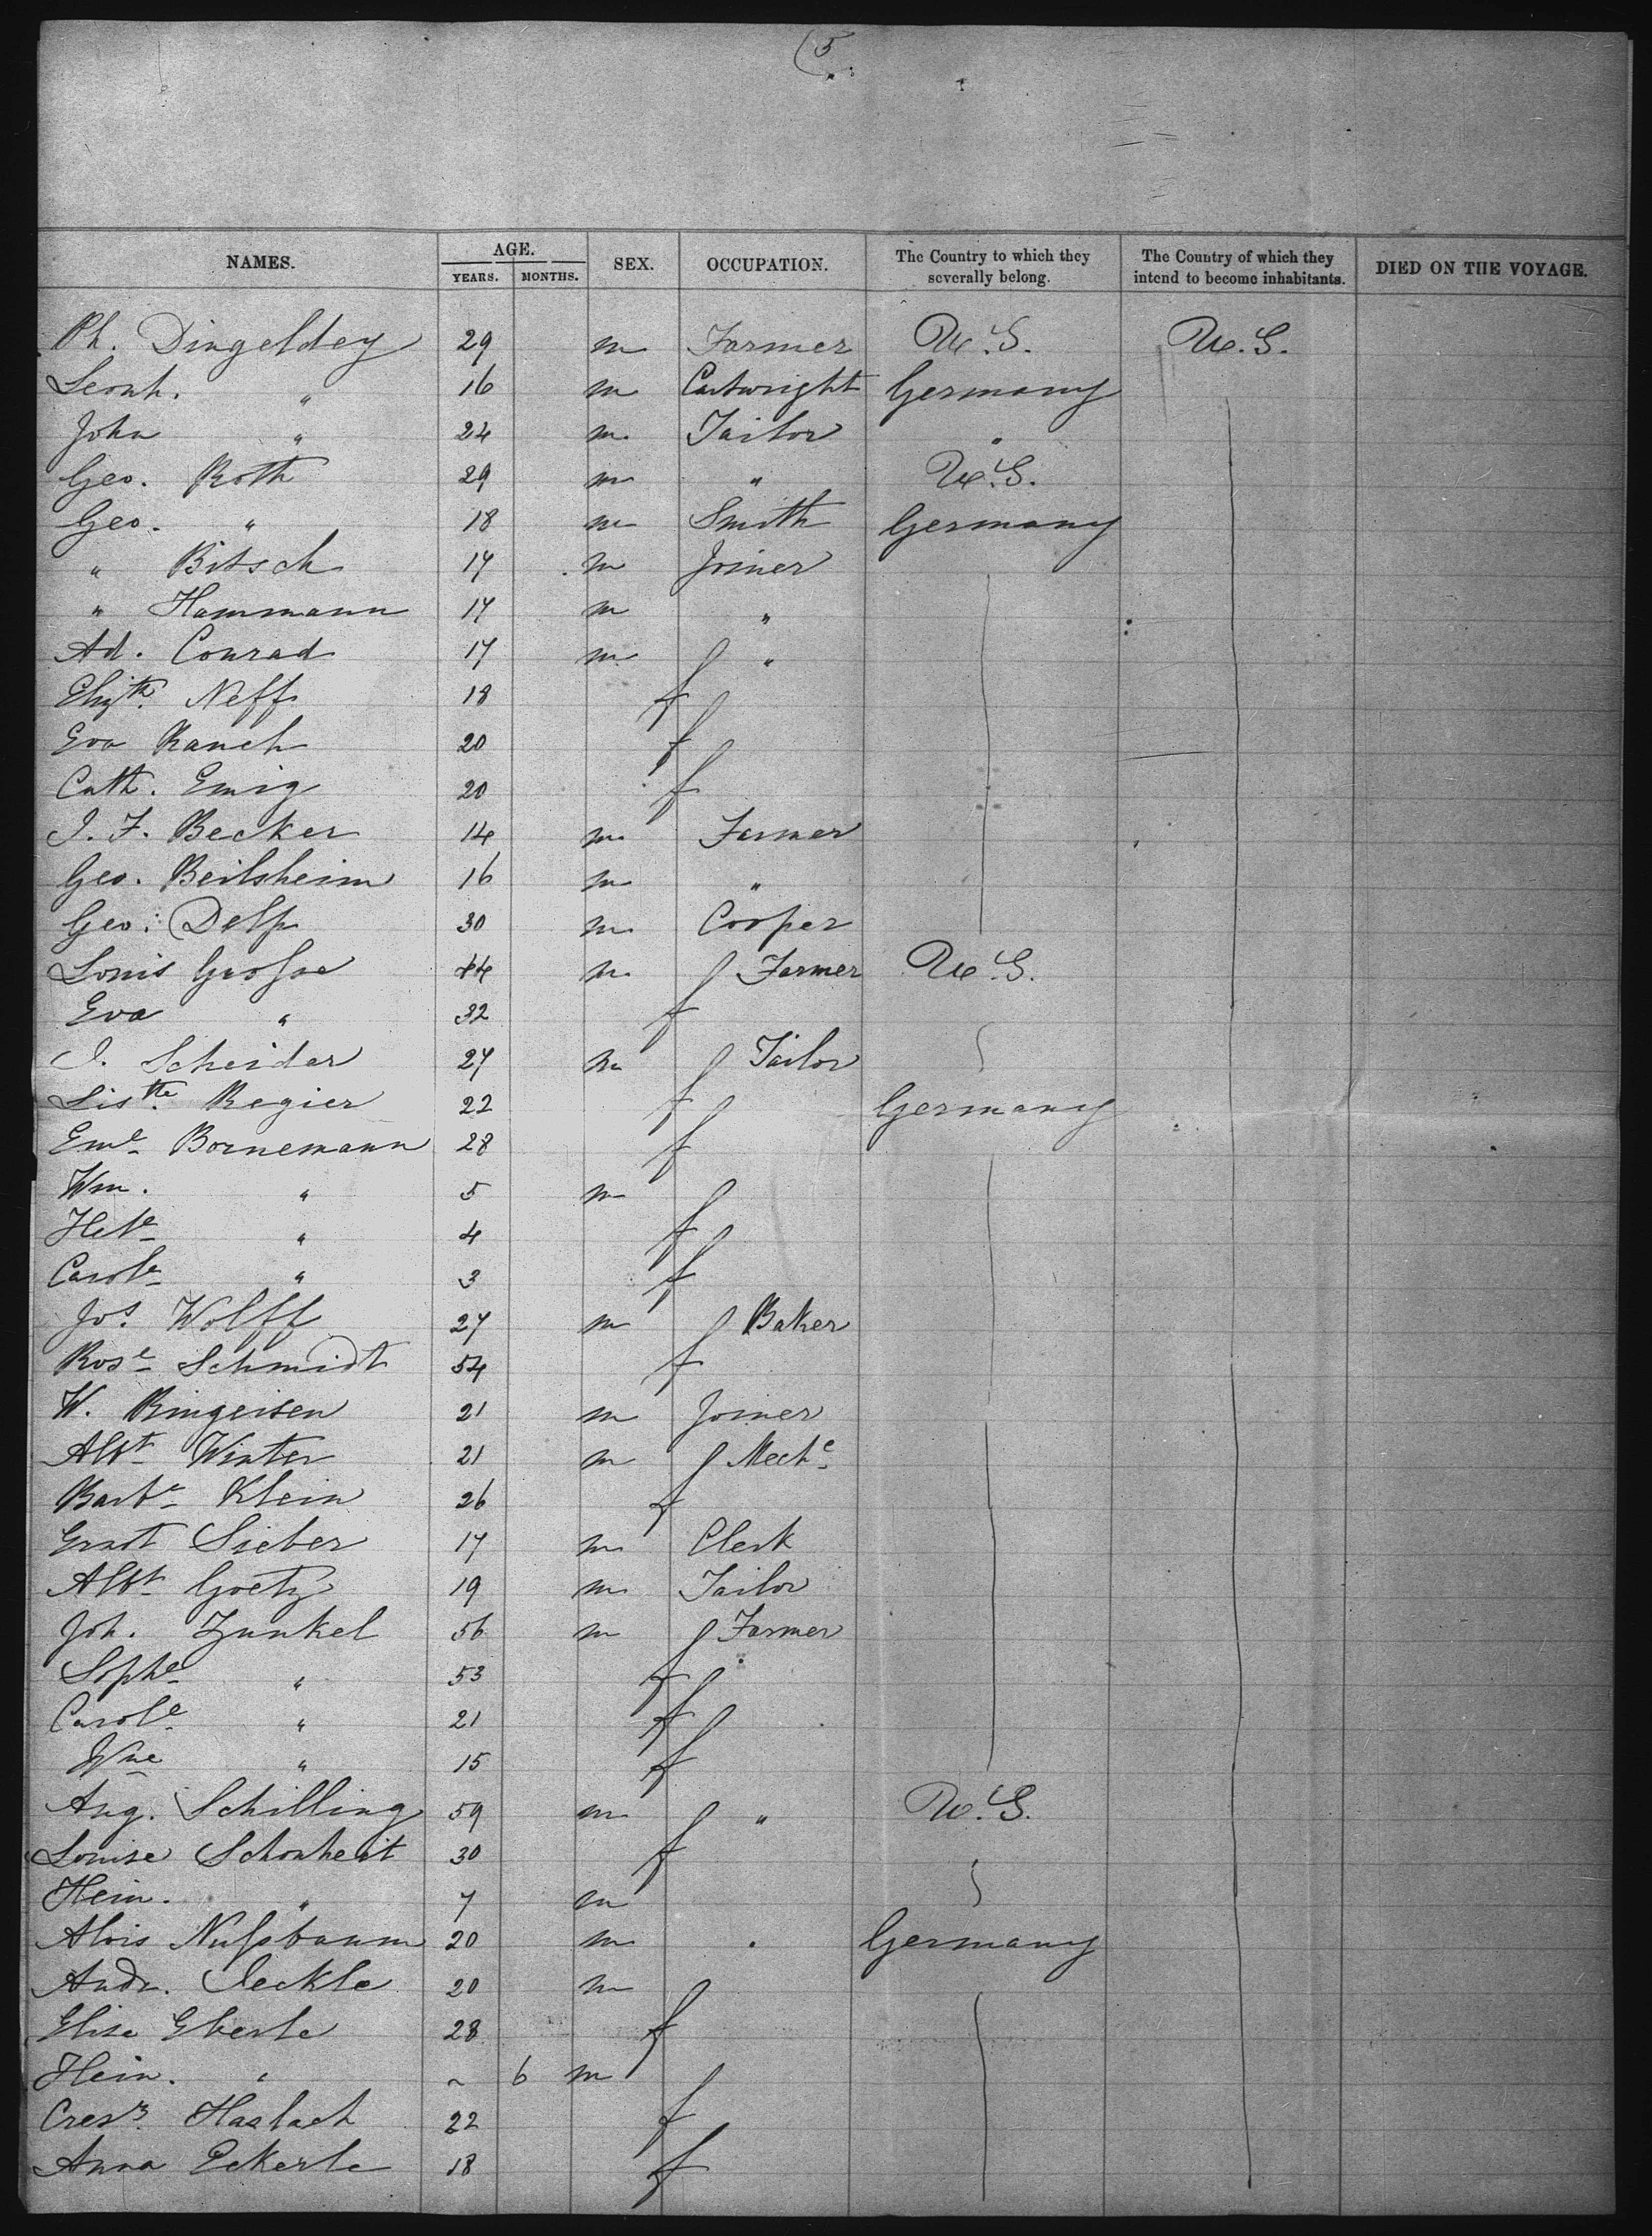 (5
NAMES. AGE. SEX. OCCUPATION. The Country to which they severally belong. The Country of which they intend to become inhabitants. DIED ON THE VOYAGE.
YEARS. MONTHS.
Ph. Dingeldey 29 m Farmer U.S. U.S.
Leonh. " 16 m Cartwright Germany
John " 24 m Tailor "
Geo. Roth 29 m " U.S.
Geo. " 18 m Smith Germany
" Bitsch 17 m Joiner
" Hammann 17 m "
Ad. Conrad 17 m "
Elizth. Neff 18 f
Eva Rauch 20 f
Cath. Emig 20 f
J. F. Becker 14 m Farmer
Geo. Beilsheim 16 m "
Geo. Delp 30 m Cooper
Louis Grosse 44 m Farmer U.S.
Eva " 32 f
J. Scheider 27 m Tailor
Listte. Regier 22 f Germany
Eme Bornemann 28 f
Wm. " 5 m
Hele " 4 f
Carole " 3 f
Jos. Wolff 27 m Baker
Rose Schmidt 54 f
W. Ringeisen 21 m Joiner
Albt Winter 21 m Mechc
Barbe Klein 26 f
Ernst Sieber 17 m Clerk
Albt Goetz 19 m Tailor
Joh. Zunkel 56 m Farmer
Sophe " 53 f
Carole " 21 f
Wne " 15 f
Aug. Schilling 59 m " U.S.
Louise Schonheit 30 f
Hein. " 7 m
Alois Nussbaum 20 m . Germany
Andr. Jeckle 20 m
Elise Eberle 28 f
Hein. " ~ 6 m
Cresz. Haslach 22 f
Anna Eckerle 18 f